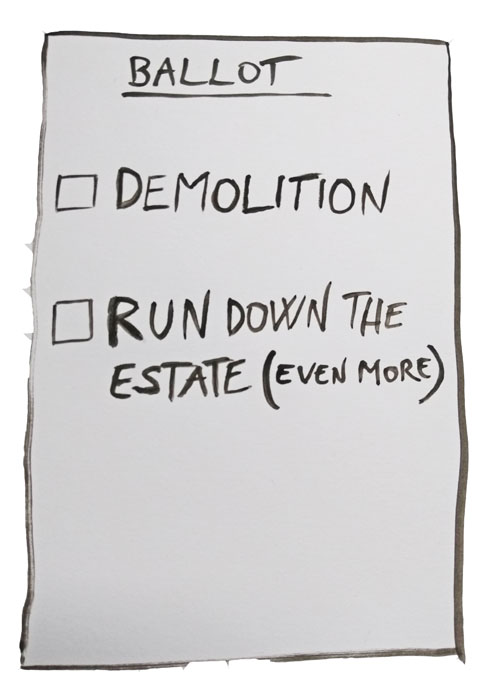 BALLOT
DEMOLITION
RUN DOWN THE
ESTATE (EVEN MORE)